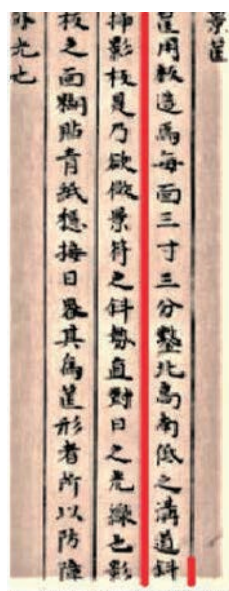 景筐
筐用板造爲每面三寸三分鑿北高南低之溝道斜
揷影板是乃欲倣景符之斜勢直對日之光線也影
板之面糊貼靑紙穩掩日晷其爲筐形者所以防障
外光也